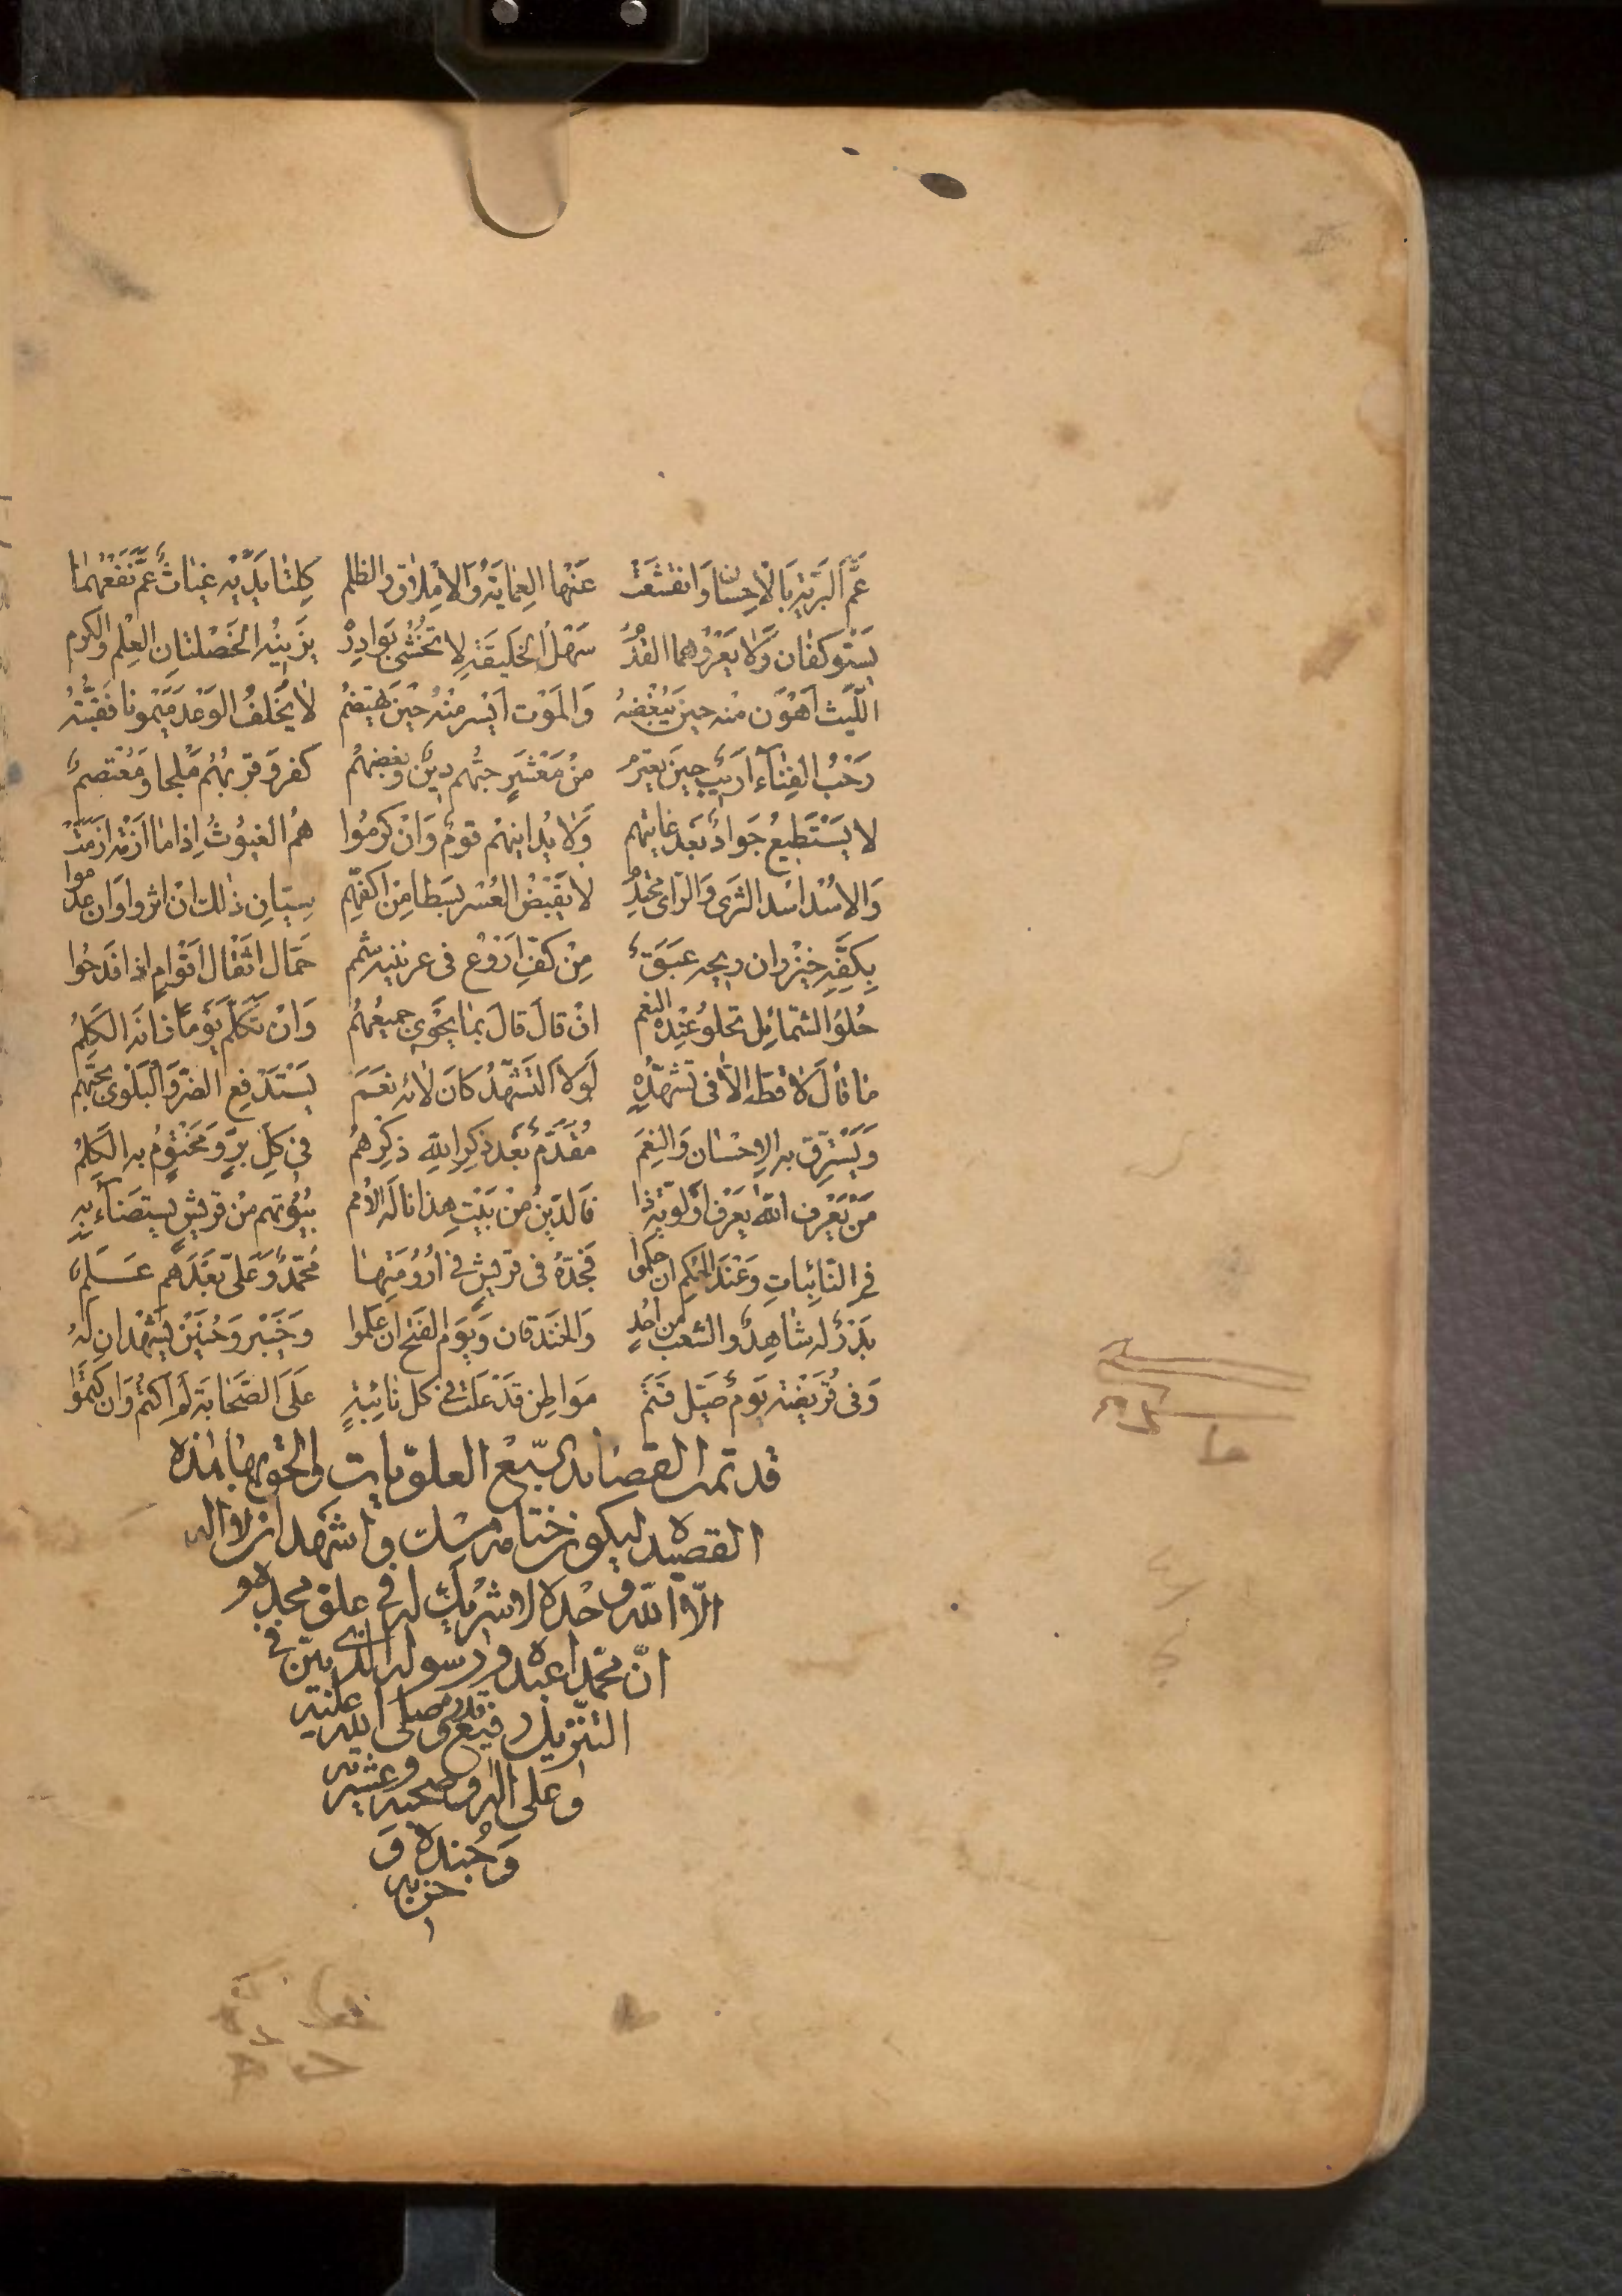 عَمَّ البَرِّيَّةِ بَالْاِحْسِانِ وَانْقَشَعَتْ عَنْهٰا العِمَايَةُ وَالْاِمْلٰاقُ والظلم كِلْتٰا يَدَيْهِ غِيٰاثٌ عَمَّ نَفْعُهُمٰا
يَسْتَوكَفٰان وَلَا يَعْرُوهما العَدَمُ سَهْلُ الخَلِيقَةِ لا تُخْشٰى بَوَادِرُهُ يزَيِنُهُ الخَصْلتٰانِ العِلْم والكرم
اللَّيْث اَهْوَن مْنه حينَ يُبْغِضِهُ وَالمَوْت اَيْسر مِنْهُ حْينَ يَهْتَضِمُ لٰا يُخْلِفُ الوَعْدَ مَيْمُونا نَقْيْبَتُهُ
رَحْبُ الفِنٰآء اَرَيْبٌ حِينَ يعتزِمُ مِنْ مَعْشَرٍ حبُّهم دِينٌ وبغضهُم كفر وَقربهُم مَلجا وَمُعْتصمٌ
لا يَسْتَطِيعُ جَوادٌ بَعَد غايتهم وَلٰا يُدانِيهُم قومٌ وَانْ كرمُوا هُم الغيُوثُ اِذا مٰا اَزْمَةٌ اَزمَتْ
وَالاُسْد اُسْد الشَرى وَالرّاى مُحْتِدمُ لا يَقْبْضُ العُسْر بسَطا مِن اكفهّم سِيّانِ ذلك انْ اثروا وَان عدموا
بِكَفِّهِ خيْزران ريحه عَبَقٌ مِنْ كفّ اَرْوَع فى عرنينه شمم حَمّال اثقْال اَقْوٰامٍ اِذا فدحُوا
حُلوُ الشمٰائِل تحلوُ عنْدهُ النعم انْ قالَ قٰالَ بمٰا يَحْوِى جميعُهمُ وَانْ تَكَلّم يَوْمًا زٰانَهُ الكَلِمُ
مٰا قٰالَ لا قطّ اِلّا فى تشَهّدِهِ لَوْلا التَشَهّدُ كانَ لٰائه نعَمَ يسْتَدْفعِ الضرّ وَالبَلْوى بحبّهم
وَيَسْترّق به الِاحْسٰان وَالنِعَمَ مُقَدّمٌ بَعْدَ ذكِر اللهِ ذكرْهُم فى كلّ برٍّ وَمَخْتُومٌ به الكَلِمُ
مَنْ يَعْرِف اللهَ يَعْرف اَوّلوّيَةِ ذا فَالدّينُ مْن بَيْتِ هذا نالَه الاُمم بيُوتهم مِن قريش يستضٰآء بِهِ
فى النّائِبٰاتِ وَعْنَد الحكمِ ان حكموا فَجَدّهُ فى قريشٍ فى اُرُوْمَتِهٰا مُحَمّدٌ وَعَلىّ بَعْدَهُم عَلَمٌ
بَدْرٌ له شاهِدٌ والشعب من اُحُدٍ وَالخنَدَقٰان وَيَوم الفَتْحِ ان عَلموا وَخَيْبر وَحُنَيْنٌ يَشْهَدان لَهُ
وَفى قُرَيْضة يَوم صَيلم قَتَمَ مَواطِنِ قَدْ عَلَتْ فى كل نائبةٍ عَلى الصّحابَة لَم اَكتُم وَان كتَمُوا
قد تمت القصايد السّبع العلوّيات والحقوا بها هذه
القصيده ليكون ختامه مسك واشهد ان لا اله
الّا الله وحده لا شريك له فى علو مجده و
انّ محمّدا عبده ورسوله الذى بيّن فى
التنزيل رفيع قدره صلى الله عليه
وعلى اله وصحبه وعترته
وَجُنده وَ
حزبه